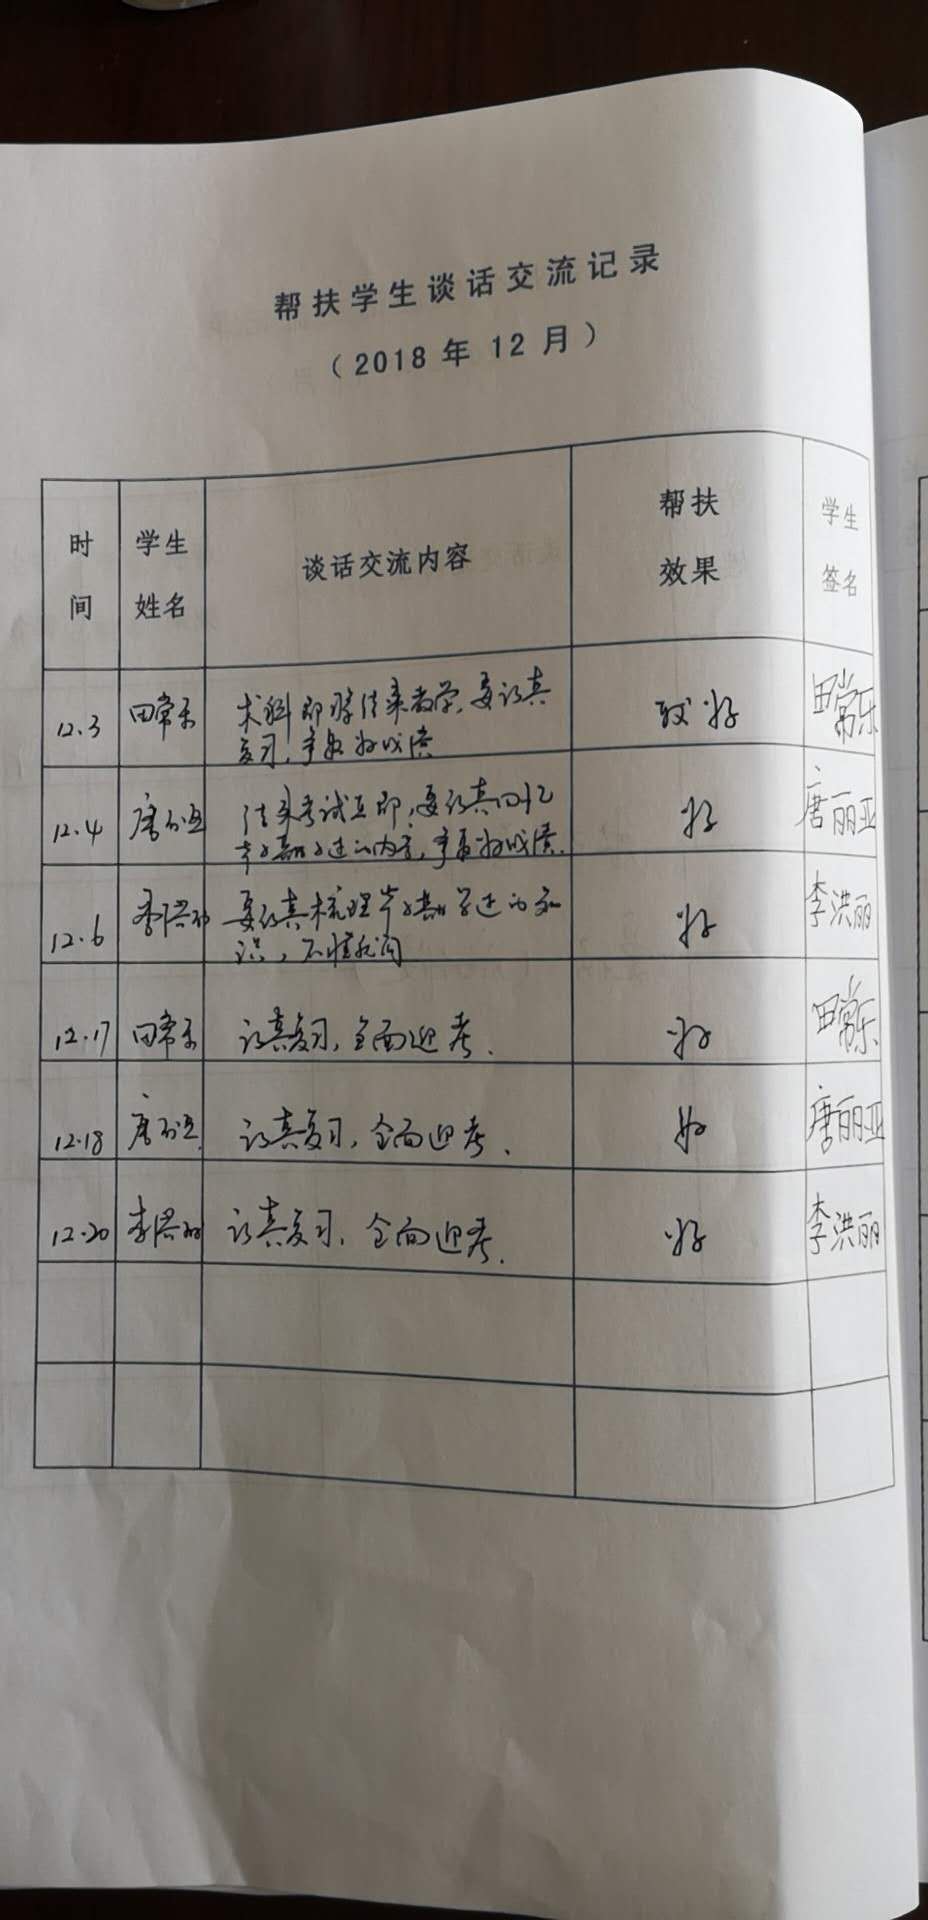 帮扶学生谈话交流记录
（2018年12月）
时间 学生姓名 谈话交流内容 帮扶效果 学生签名
12.3 田常乐 术科即将结束教学，要认真 较好 田常乐
复习，争取好成绩
12.4 唐丽亚 结束考试在即，要认真回忆 好 唐丽亚
学过的内容，争取好成绩.
12.6 李洪丽 要认真梳理学期学过的知 好 李洪丽
识，不懂就问
12.17 田常乐 认真复习，全面迎考. 好 田常乐
12.18 唐丽亚 认真复习，全面迎考. 好 唐丽亚
12.20 李洪丽 认真复习，全面迎考. 好 李洪丽